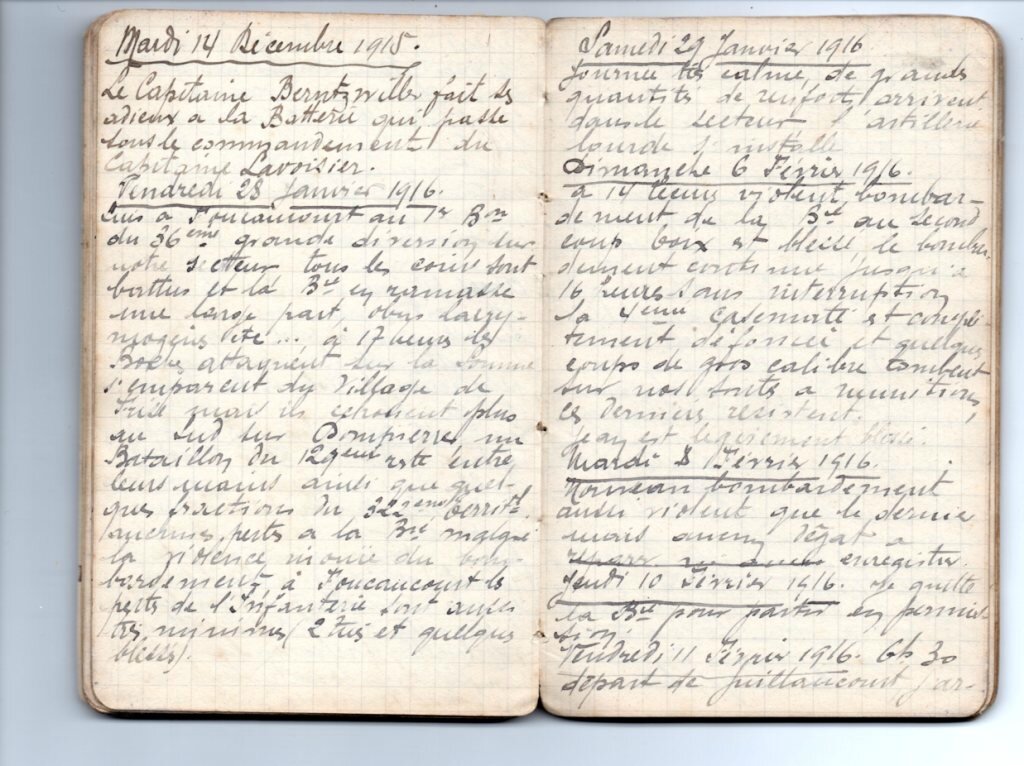 Mardi 14 Décembre 1915.
Le Capitaine Berntzwiller fait ses
adieux à la Batterie qui passe
sous le commandement du
Capitaine Lavoisier.
Vendredi 28 Janvier 1916.
suis à Foucaucourt au 1er Bon
du 36ème grande diversion sur
notre secteur tous les coins sont
battus et la Bie en ramasse
une large part, obus lacry-
mogènes etc... à 17 heures les
Boches attaquent sur la Somme
s'emparent du Village de
Frise mais ils échouent plus
au Sud sur Dompierre un
Bataillon du 129ème reste entre
leurs mains ainsi que quel-
ques fractions du 322ème territ.
aucunes pertes a la Bie malgré
la violence inouïe du bom-
bardement, à Foucaucourt les
pertes de l'Infanterie sont aussi
très minimes (2 tués et quelques
blessés).
Samedi 29 Janvier 1916
Journée très calme, de grandes
quantités de renfort arrivent
dans le secteur l'artillerie
lourde s'installe
Dimanche 6 Février 1916.
à 14 heures violent bombar-
dement de la Bie au second
coup est blessé, le bombar-
dement continue jusqu'à
16 heures sans interruption
la 4ème casemate est complè-
tement défoncée et quelques
coups de gros calibre tombent
sur nos abris a munitions,
ces derniers résistent.
Jean est légèrement blessé.
Mardi 8 Février 1916.
Nouveau bombardement
aussi violent que le dernier
mais aucun dégât a
enregistrer
Jeudi 10 Février 1916. Je quitte
la Bie pour partir en permis-
sion.
Vendredi 11 Février 1916. 6h30
départ de Guillaucourt j'ar-